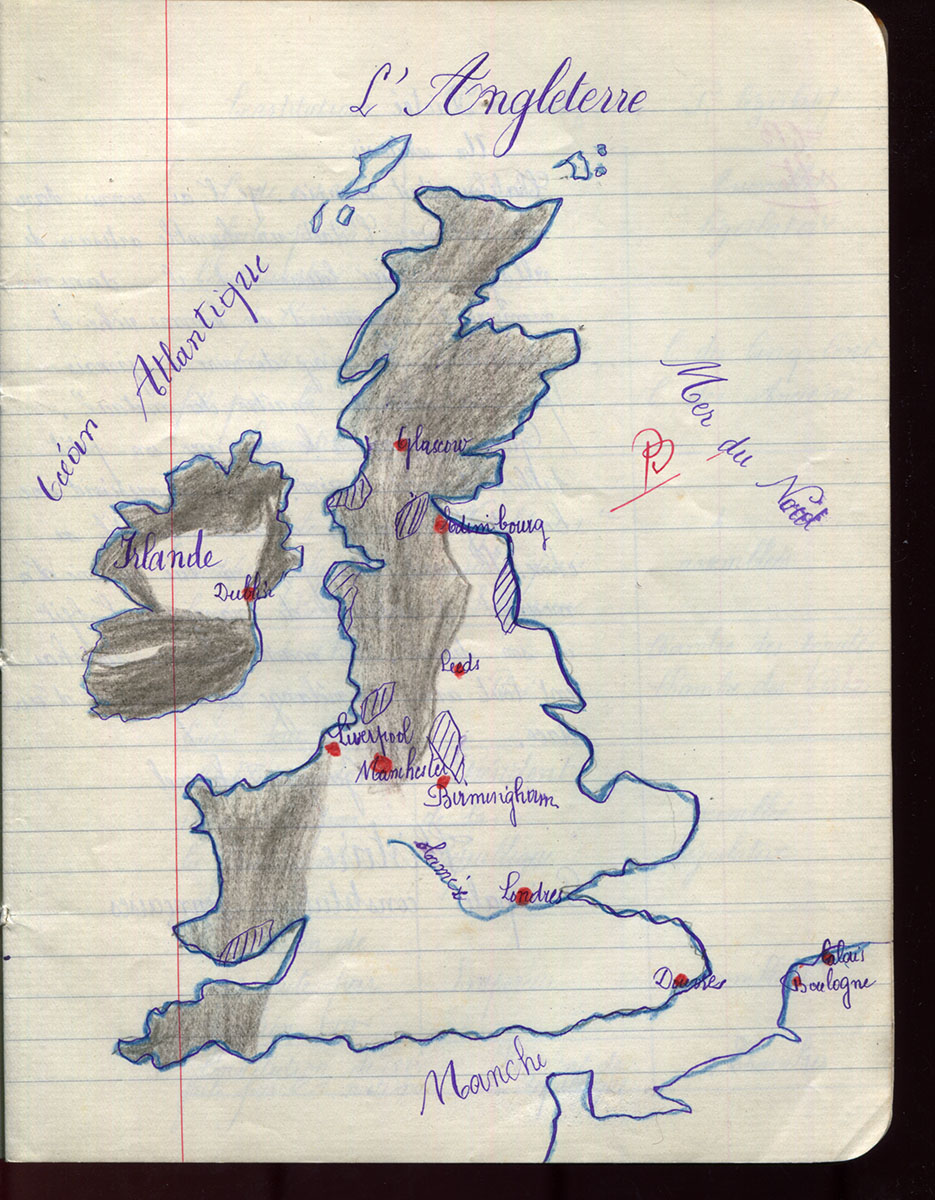 L'Angleterre
Océan Atlantique
Mer du Nord
Glascow
Edimbourg
Irlande
Dublin
Leeds
Liverpool
Manchester
Birmingham
Tamise
Londres
Douvres
Calais
Boulogne
Manche